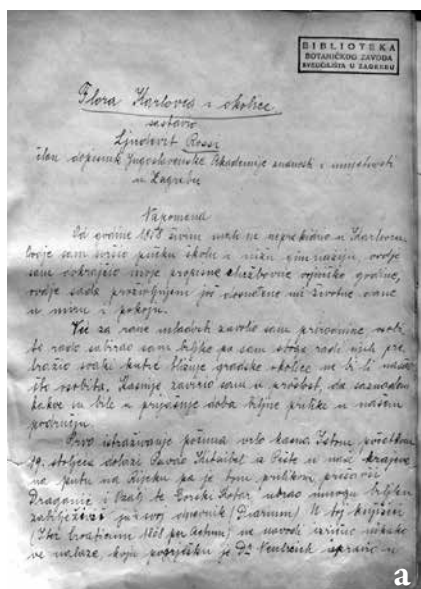 BIBLIOTEKA
BOTANIČKOG ZAVODA
SVEUČILIŠTA U ZAGREBU
Flora Karlovca i okolice
sastavio
Ljudevit Rossi
član dopisnik Jugoslavenske Akademije znanosti i umjetnosti
u Zagrebu
Napomena
Od godine živim malo ne neprekidno u Karlovcu.
Ovdje sam svršio pučku školu i nižu gimnaziju, ovdje
sam dokrajčio moje propisne službovne vojničke godine,
ovdje sada proživljujem još dosuđene mi životne dane
u miru i pokoju.
Već za rane mladosti zavolio sam prirodnine
te rado sabirao sam bilje pa sam stoga radi njih pre
tražio svaki kutić bliže gradske okolice ne bi li našao
što osobita. Kasnije zavirio sam u prošlost, da saznadem
kakve su bile u prijašnje doba biljne prilike u našem
području.
Prvo istraživanje počima vrlo kasno. Istom početkom
19. stoljeća dolazi Pavao Kitaibel iz Pešte u naše krajeve
na putu na Rijeku pa je tom prilikom
Draganić i Ozalj te Gorski Kotar, ubrao mnogu biljku
zabilježivši ju u svoj dnevnik (Diarium) U toj knjižici
(Iter Croaticum 1802 per Actum) ne navodi izrično nikako
ve nalaze, koju pogrješku je Dr Neilreich ispravio u
a